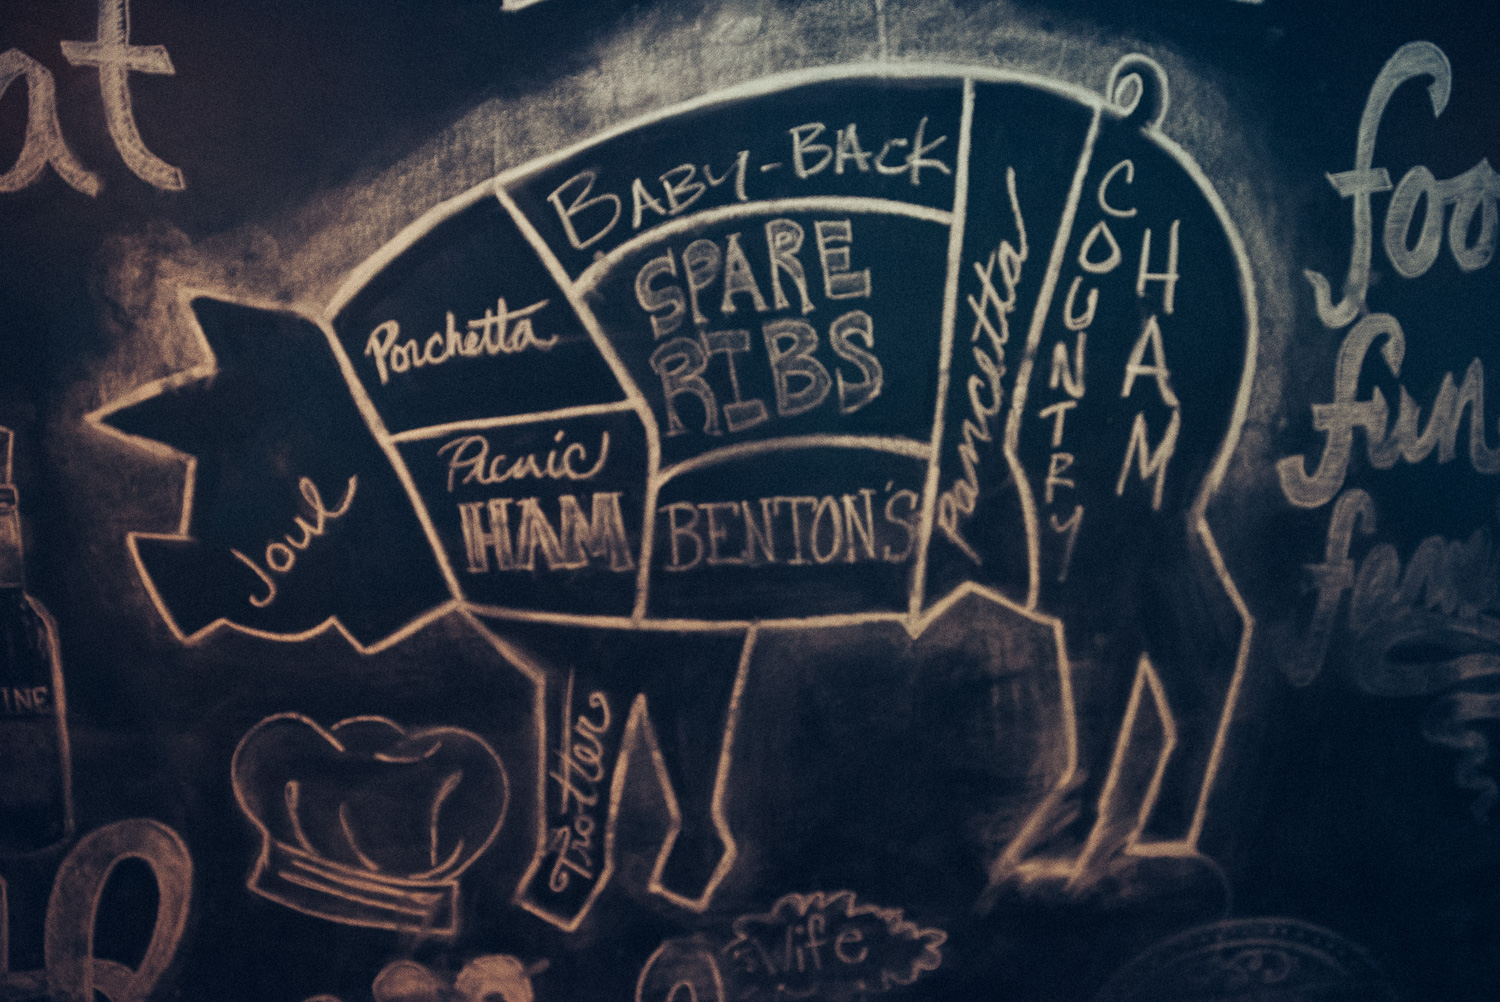 at
BABY-BACK
SPARE
RIBS
Porchetta
Picnic
HAM
BENTON'S
Joul
pancetta
COUNTRY
HAM
Trotter
foo
fun
INE
Wife